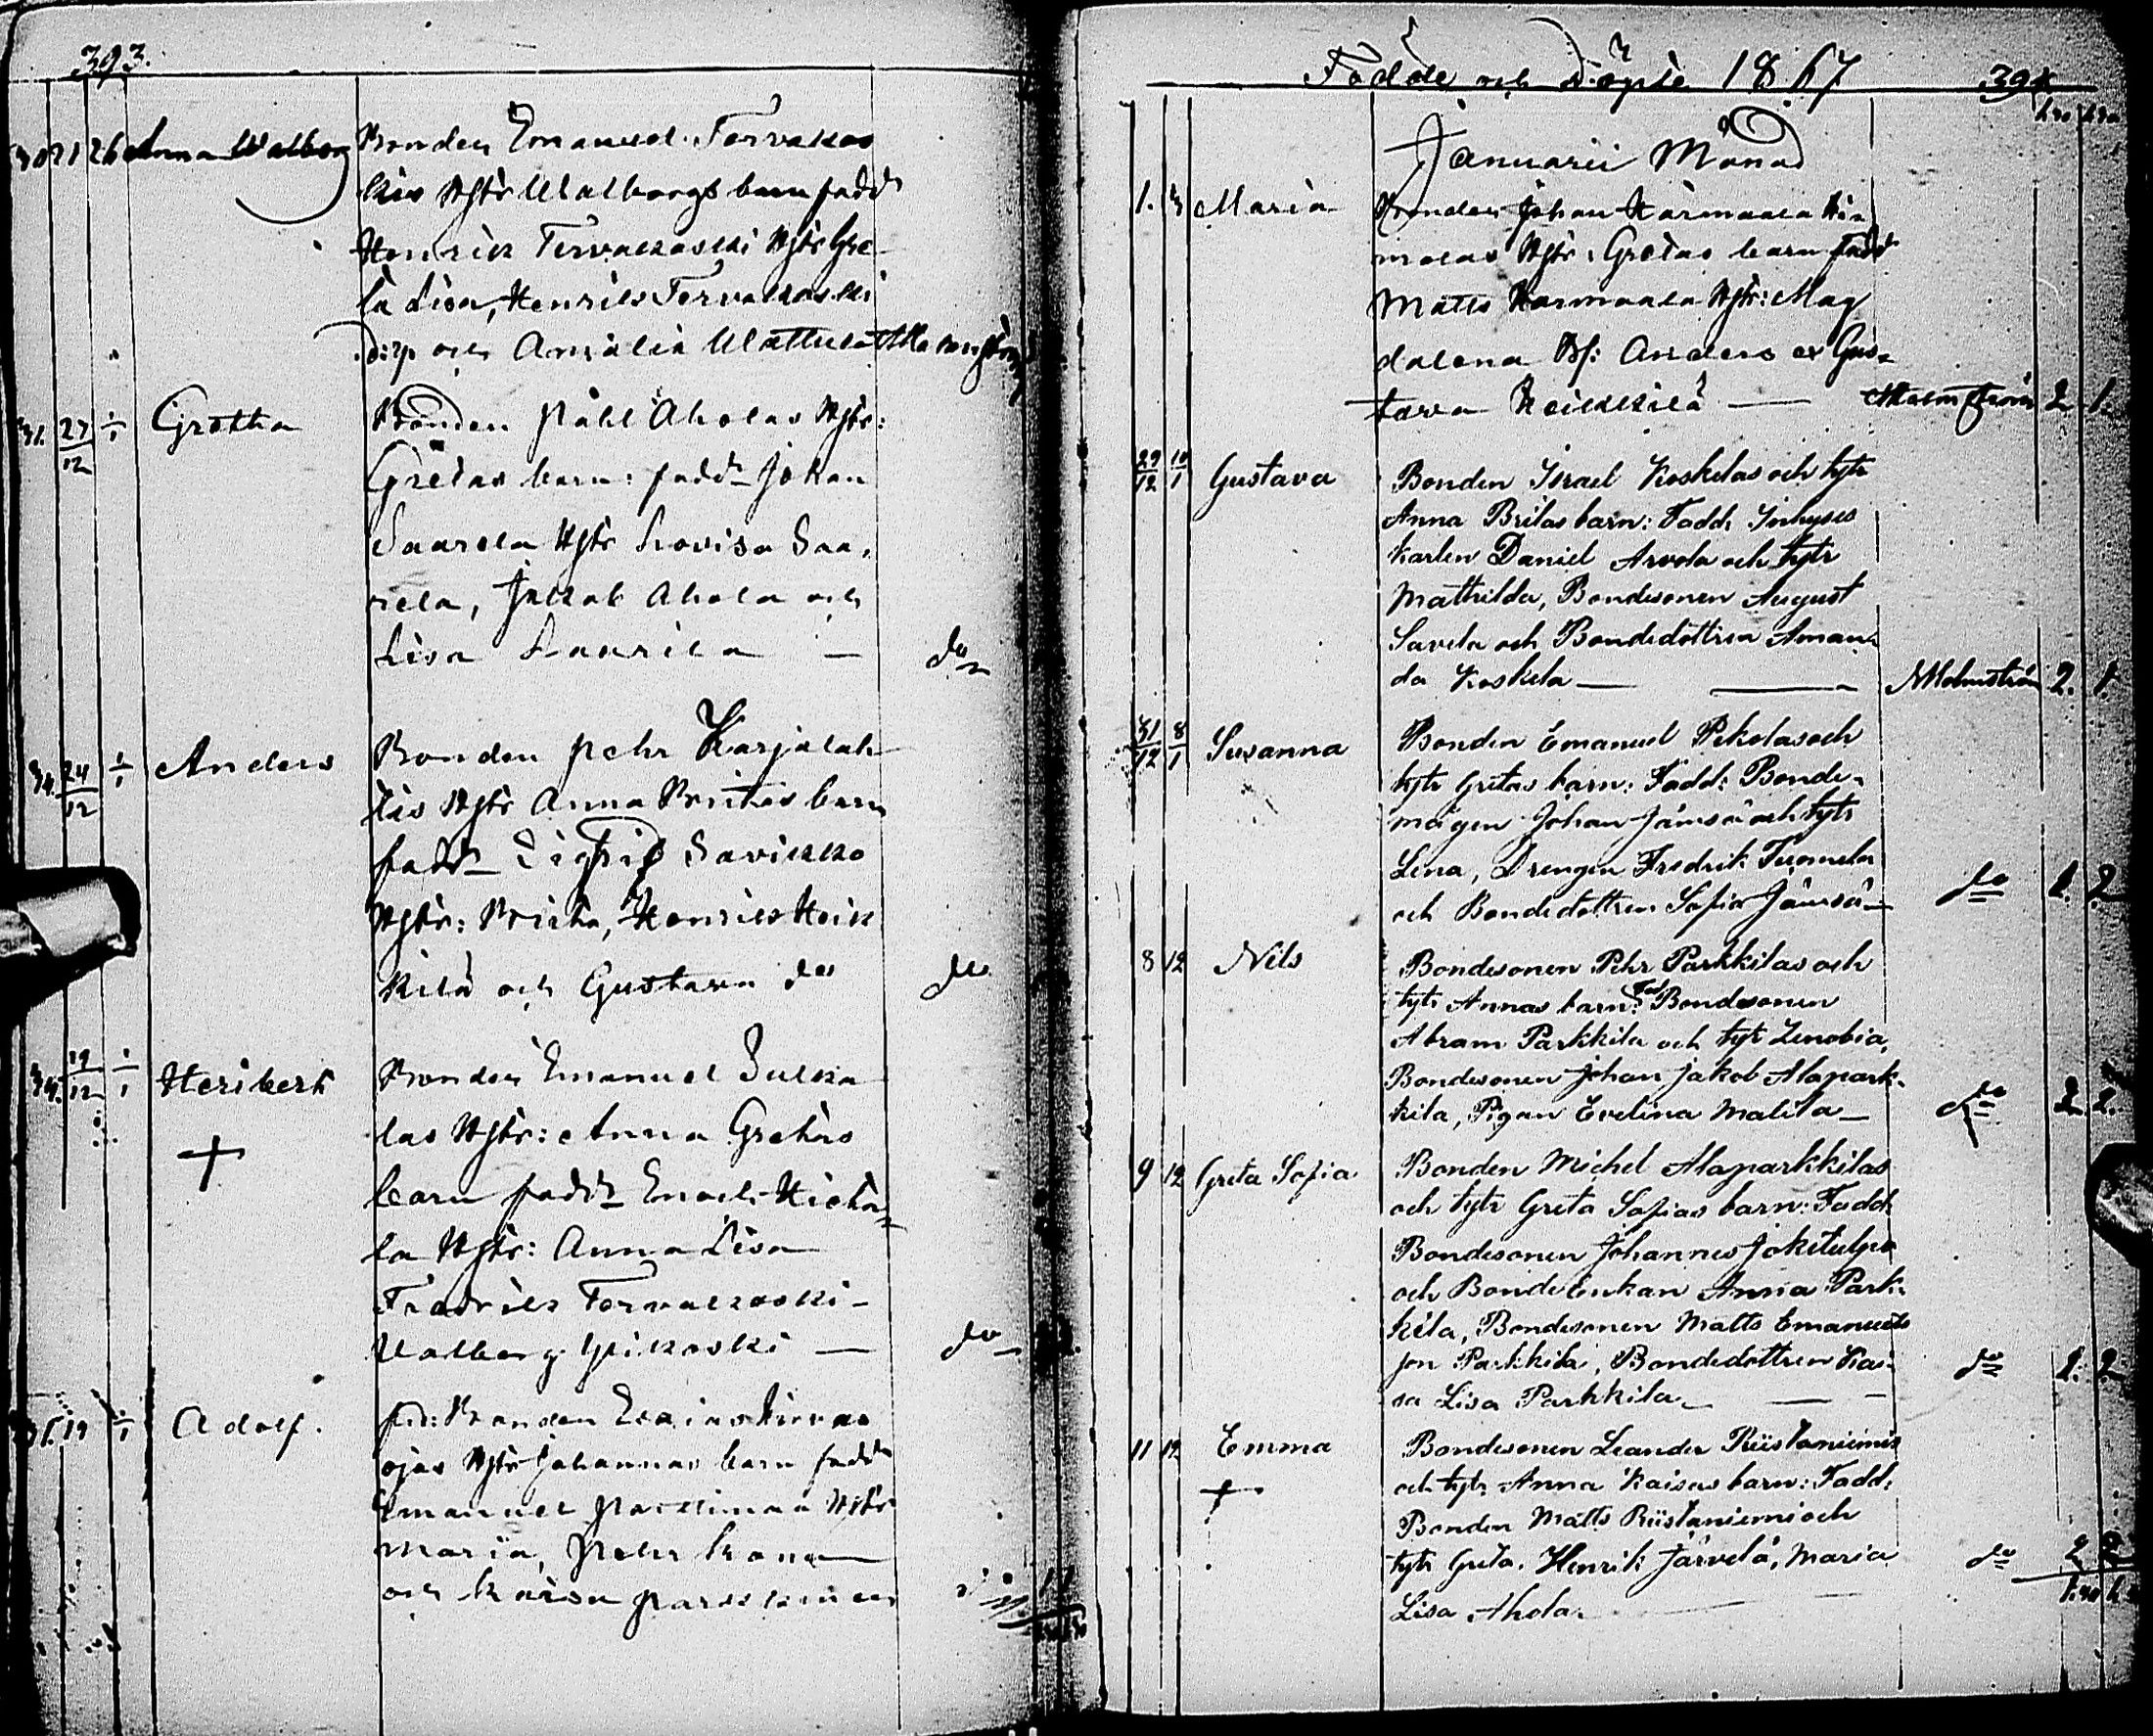 393.
21 26 Anna Walborg Bonden Emanuel Tervakos
kis Hstr Walborgs barn fadd
Henrik Tervakoski Hstr Gre
ta Lisa, Henrik Tervakoski
och Amalia
27/12 1/1 Gretha Bonden Påhl Aholas Hstr:
Gretas barn: fadd Johan
Saarela Hstr Lovisa Saa,
rela, Jakob Ahola och
Lisa Laurila — do
34. 24/12 1/1 Anders Bonden Pehr Karjalah
tis Hstr Anna Britas barn
fadd Sigfrid Savikko
Hstr: Britha, Henrik Heik
kilä och Gustava do do
34. 19/12 1/1 Heribert Bonden Emanuel Sulka
las Hstr: Anna Gretas
barn fadd Enoch Hieta
la Hstr: Anna Lisa
Fredrik Tervakoski
Walborg — do
19 1/1 Adolf. Bonden
ojas Hstr Johannas barn fadd
Emanuel Hstr
Maria, Pehr
och Kaisa
Födde och Döpte 1867 394
Januarii Månad
1. Maria Bonden Johan Karmaala
Hstr: Gretas barn fadd
Matts Karmaala Hstr: Mag
dalena Anders o Gus-
tava Heikkilä — Malmström 2. 1.
29/12 10/1 Gustava Bonden Israel Koskelas och hstr
Anna Britas barn: Fadd: Inhyses
karlen Daniel Arvola och hstr
Mathilda, Bondesonen August
Savela och Bondedottren Aman-
da Koskela — — Malmström 2. 1.
31/12 8/1 Susanna Bonden Emanuel Pekolas och
hstr Gretas barn: Fadd: Bonde-
mågen Johan Jämsä och hstr
Lena, Drengen Fredrik Tuomela
och Bondedottren Sofia Jämsä — do 1. 2.
8 12 Nils Bondesonen Pehr Parkkilas och
hstr Annas barn: Fad Bondesonen
Abram Parkkila och hstr Zenobia,
Bondesonen Johan Jakob Alapark-
kila, Pigan Evelina Malila — do 2. 2.
9 12 Greta Sofia Bonden Michel Alaparkkilas
och hstr Greta Sofias barn: Fadd:
Bondesonen Johannes Jokitulpo
och BondeEnkan Anna Park-
kila, Bondesonen Matts Emanuels
son Parkkila, Bondedottren Kai-
sa Lisa Parkkila — — do 1. 2.
11 12 Emma Bondesonen Leander Riistaniemis
och hstr Anna Kaisas barn: Fadd:
Bonden Matts Riistaniemi och
hstr Greta. Henrik Järvelä, Maria
Lisa Ahola. do 2 2